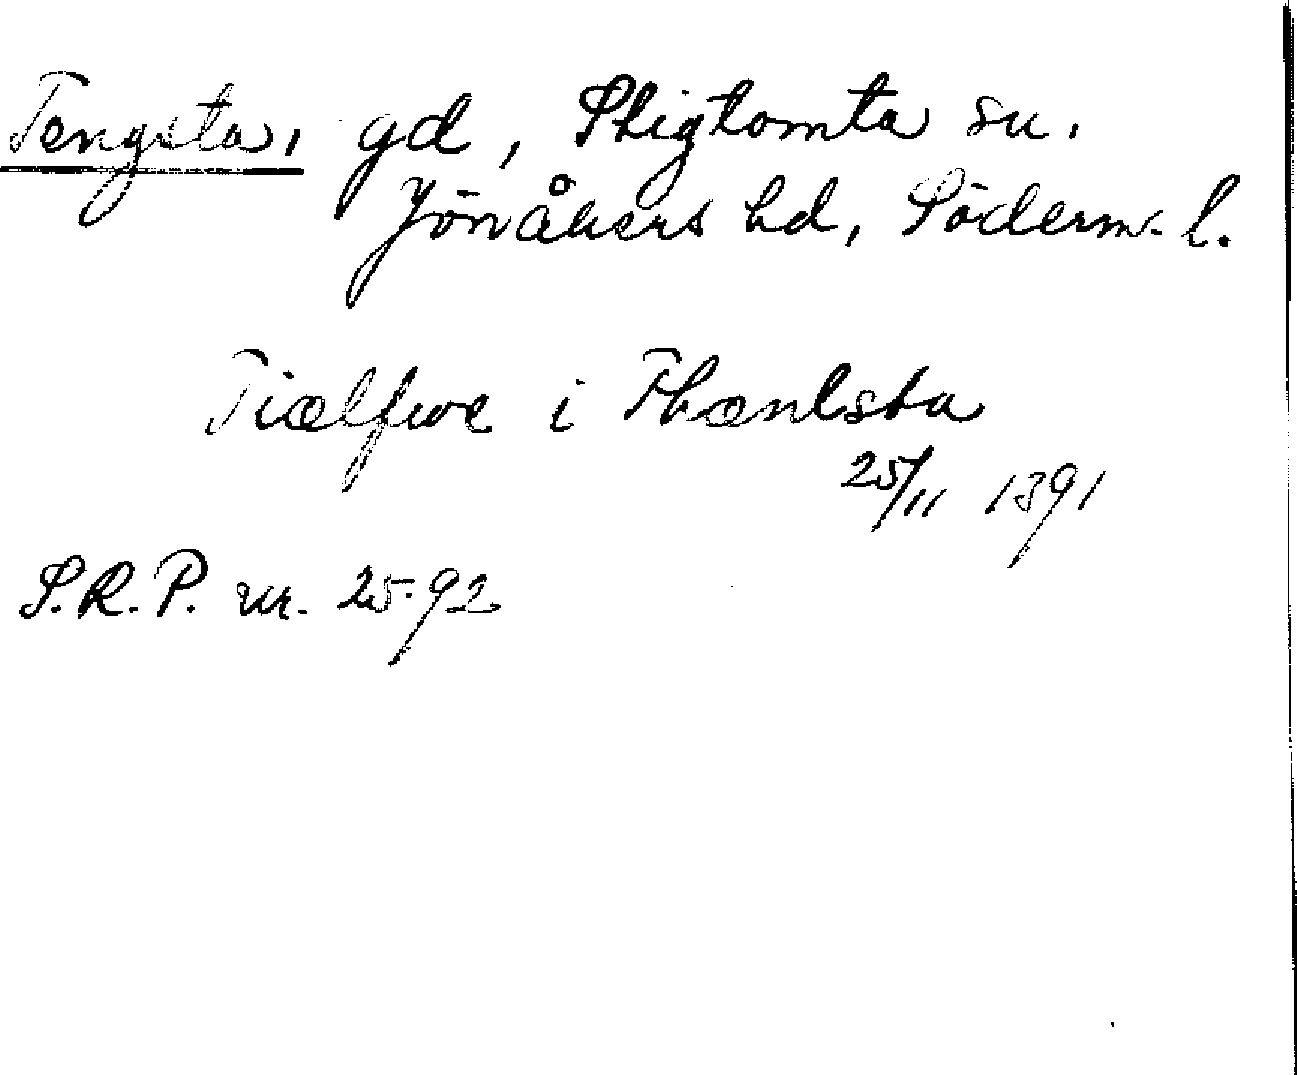 Tengsta, gd, Stigtomta sn.
Jönåkers hd, Söderm. l.
Tiælfwe i Thænksta
25/11 1391
S.R.P. nr. 2592